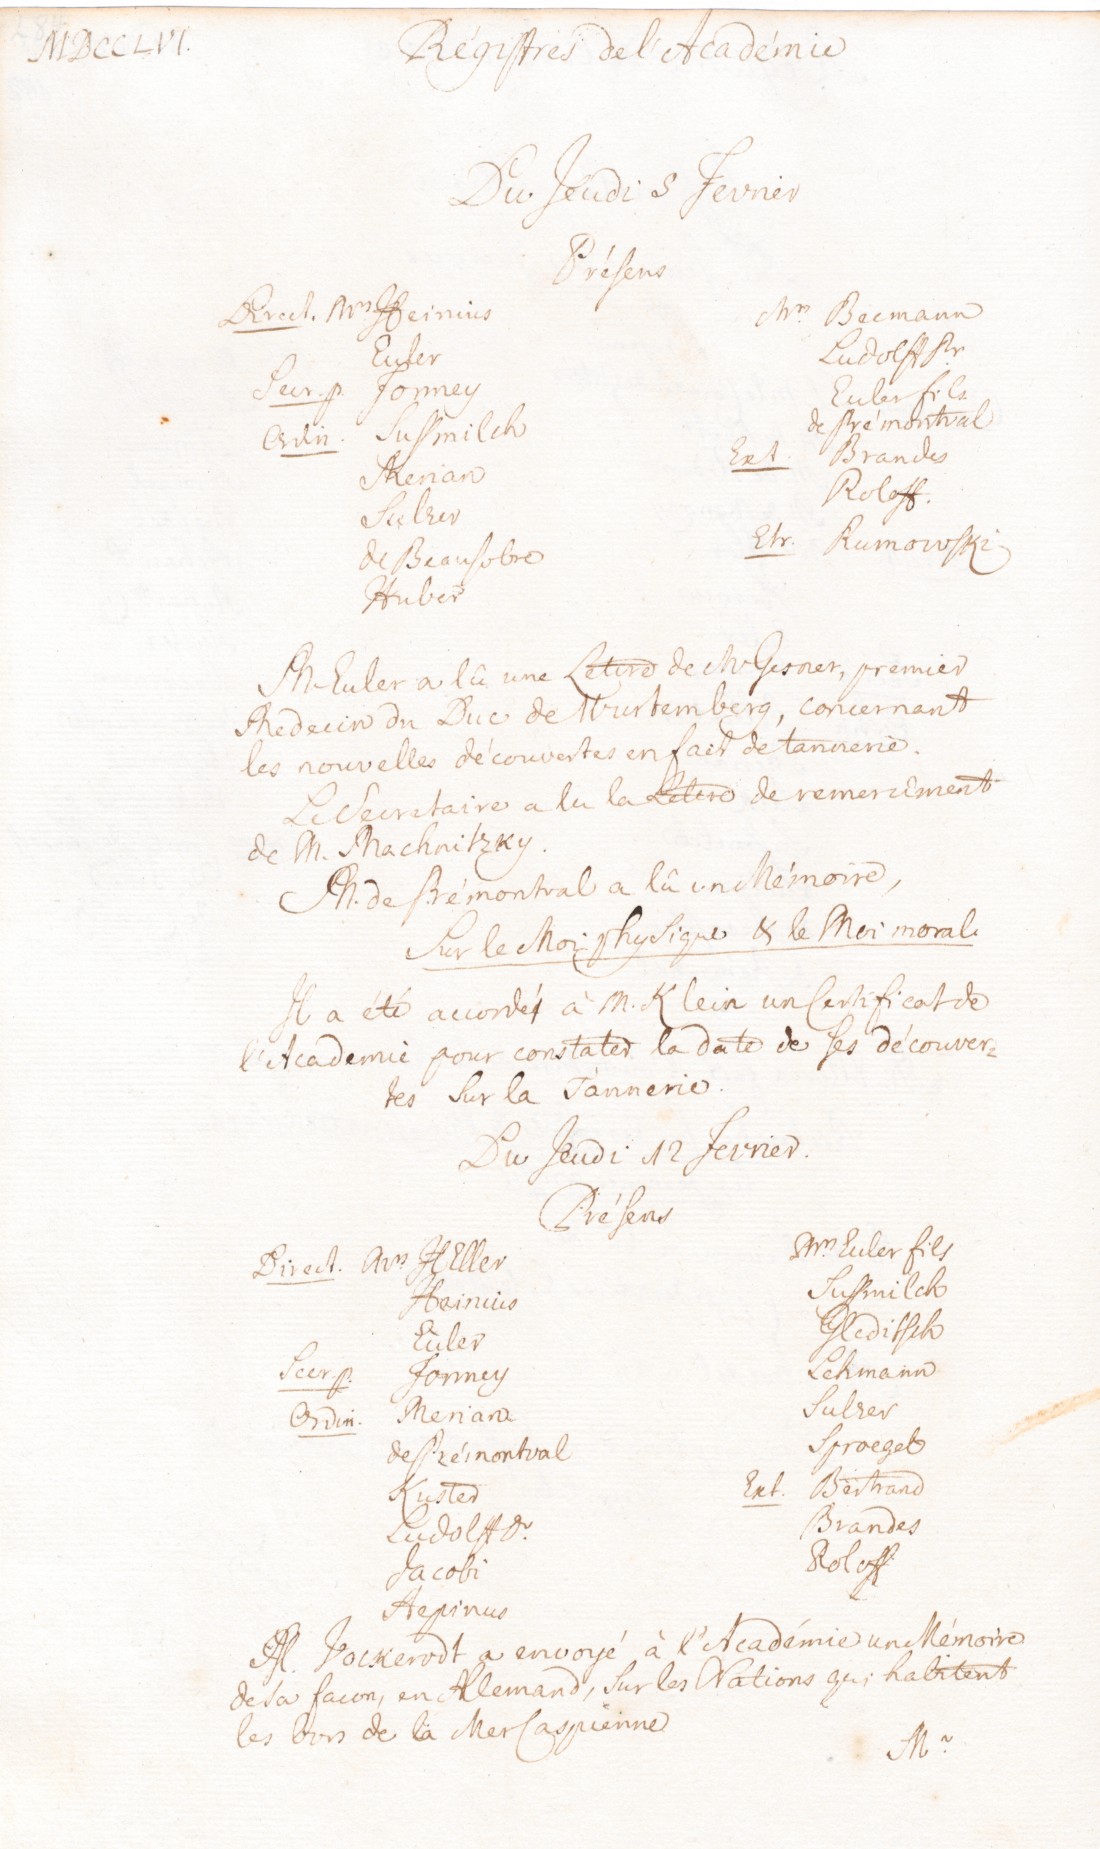 MDCCLVI.
Régistres de l'Académie
Du Jeudi 5 Fevrier
Présens
Direct. Mrs Heinius
Euler
Secr. p. Formey
Ordin. Sussmilch
Merian
Sulzer
de Beausobre
Huber
Mrs Becmann
Ludolff Pr.
Euler fils
de Prémontval
Ext. Brandes
Roloff.
Etr. Rumowski
M. Euler a lû une Lettre de Mr Gesner, premier
Medecin du Duc de Wurtemberg, concernant
les nouvelles découvertes en fait de tannerie.
Le Secretaire a lu la Lettre de remerciment
de M. Machnitzky.
M. de Prémontval a lû un Mémoire,
Sur le Moi physique & le Moi moral.
Il a été accordé à M. Klein un Certificat de
l'Academie pour constater la date de ses découver=
tes sur la Tannerie.
Du Jeudi 12 Fevrier.
Présens
Direct. Mrs Eller
Heinius
Euler
Secr. p. Formey
Ordin. Merian
de Prémontval
Kuster
Ludolff
Jacobi
Aepinus
Mrs Euler fils
Sussmilch
Gleditsch
Lehmann
Sulzer
Sproegel
Ext. Bertrand
Brandes
Roloff
M. Vockerodt a envoyé à l'Académie un Mémoire
de sa facon, en Allemand, sur les Nations qui habitent
les bors de la Mer Caspienne
Mr